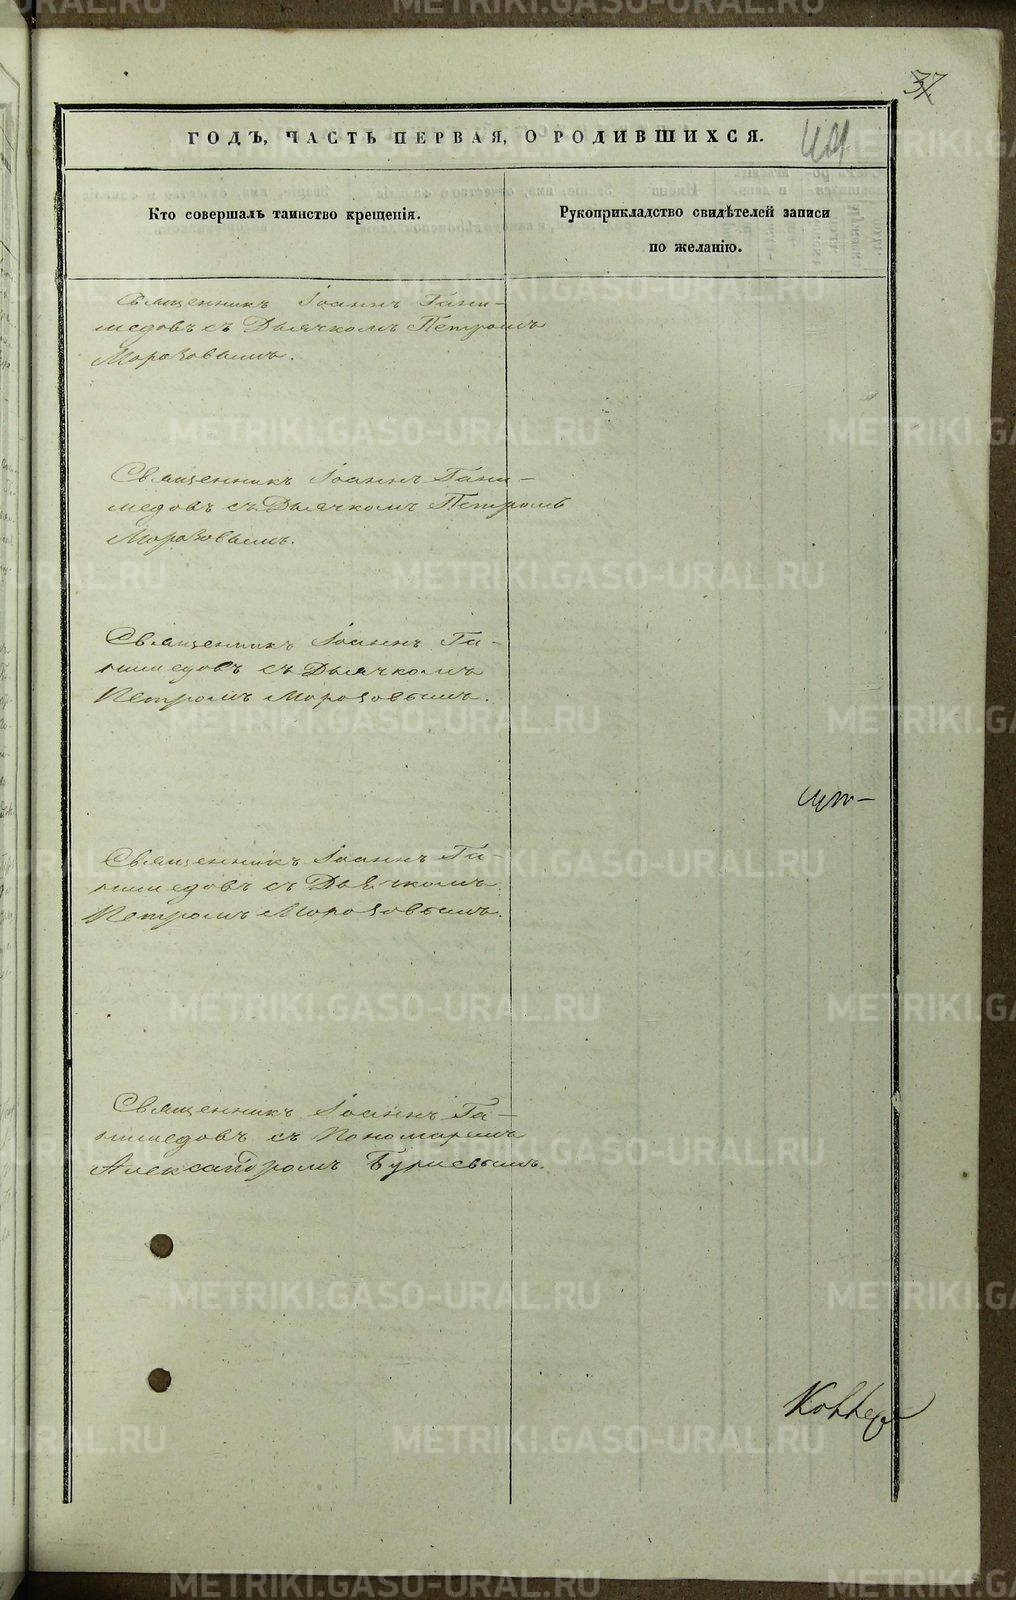 37
ГОДЪ, ЧАСТЬ ПЕРВАЯ, О РОДИВШИХСЯ.
Кто совершалъ таинство крещенія.
Рукоприкладство свидѣтелей записи
по желанію.
Священникъ Іоаннъ Гани-
медовъ съ Дьячкомъ Петромъ
Морозовымъ.
Священникъ Іоаннъ Гани-
медовъ съ Дьячкомъ Петромъ
Морозовымъ.
Священникъ Іоаннъ Га-
нимедовъ съ Дьячкомъ
Петромъ Морозовымъ.
Священникъ Іоаннъ Га-
нимедовъ съ Дьячкомъ
Петромъ Морозовымъ.
Священникъ Іоаннъ Га-
нимедовъ съ Пономаремъ
Александромъ
METRIKI.GASO-URAL.RU